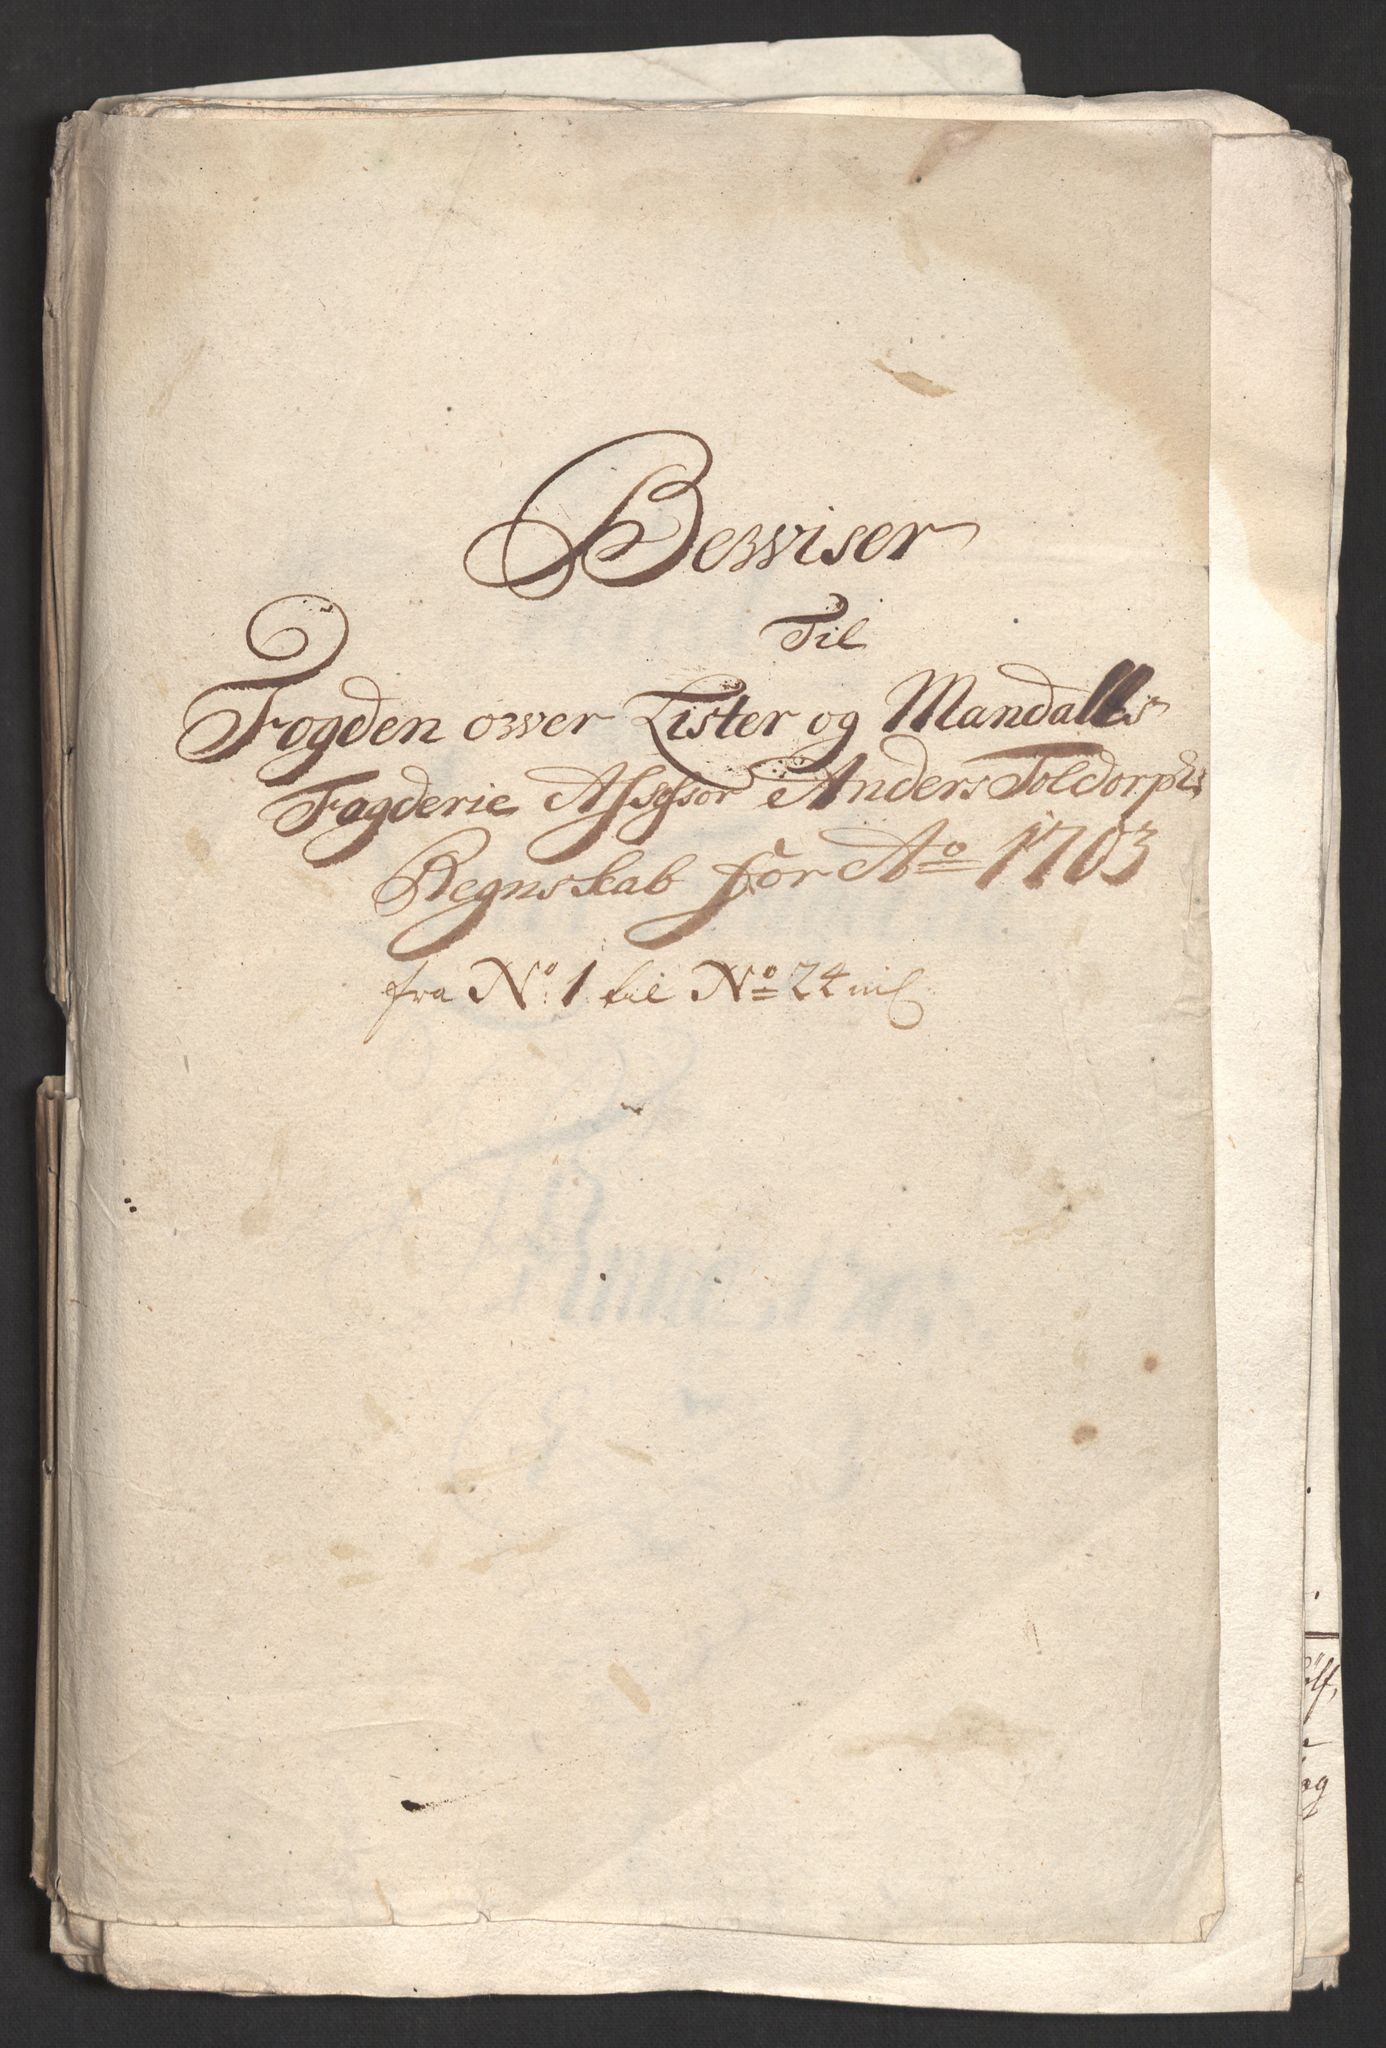 Bewiser
Til
Fogden over Lister og Mandalls
Fogderie Assessor Anders Toldorphs
Regnskab for Ao 1703
fra No 1 til No 24 incl